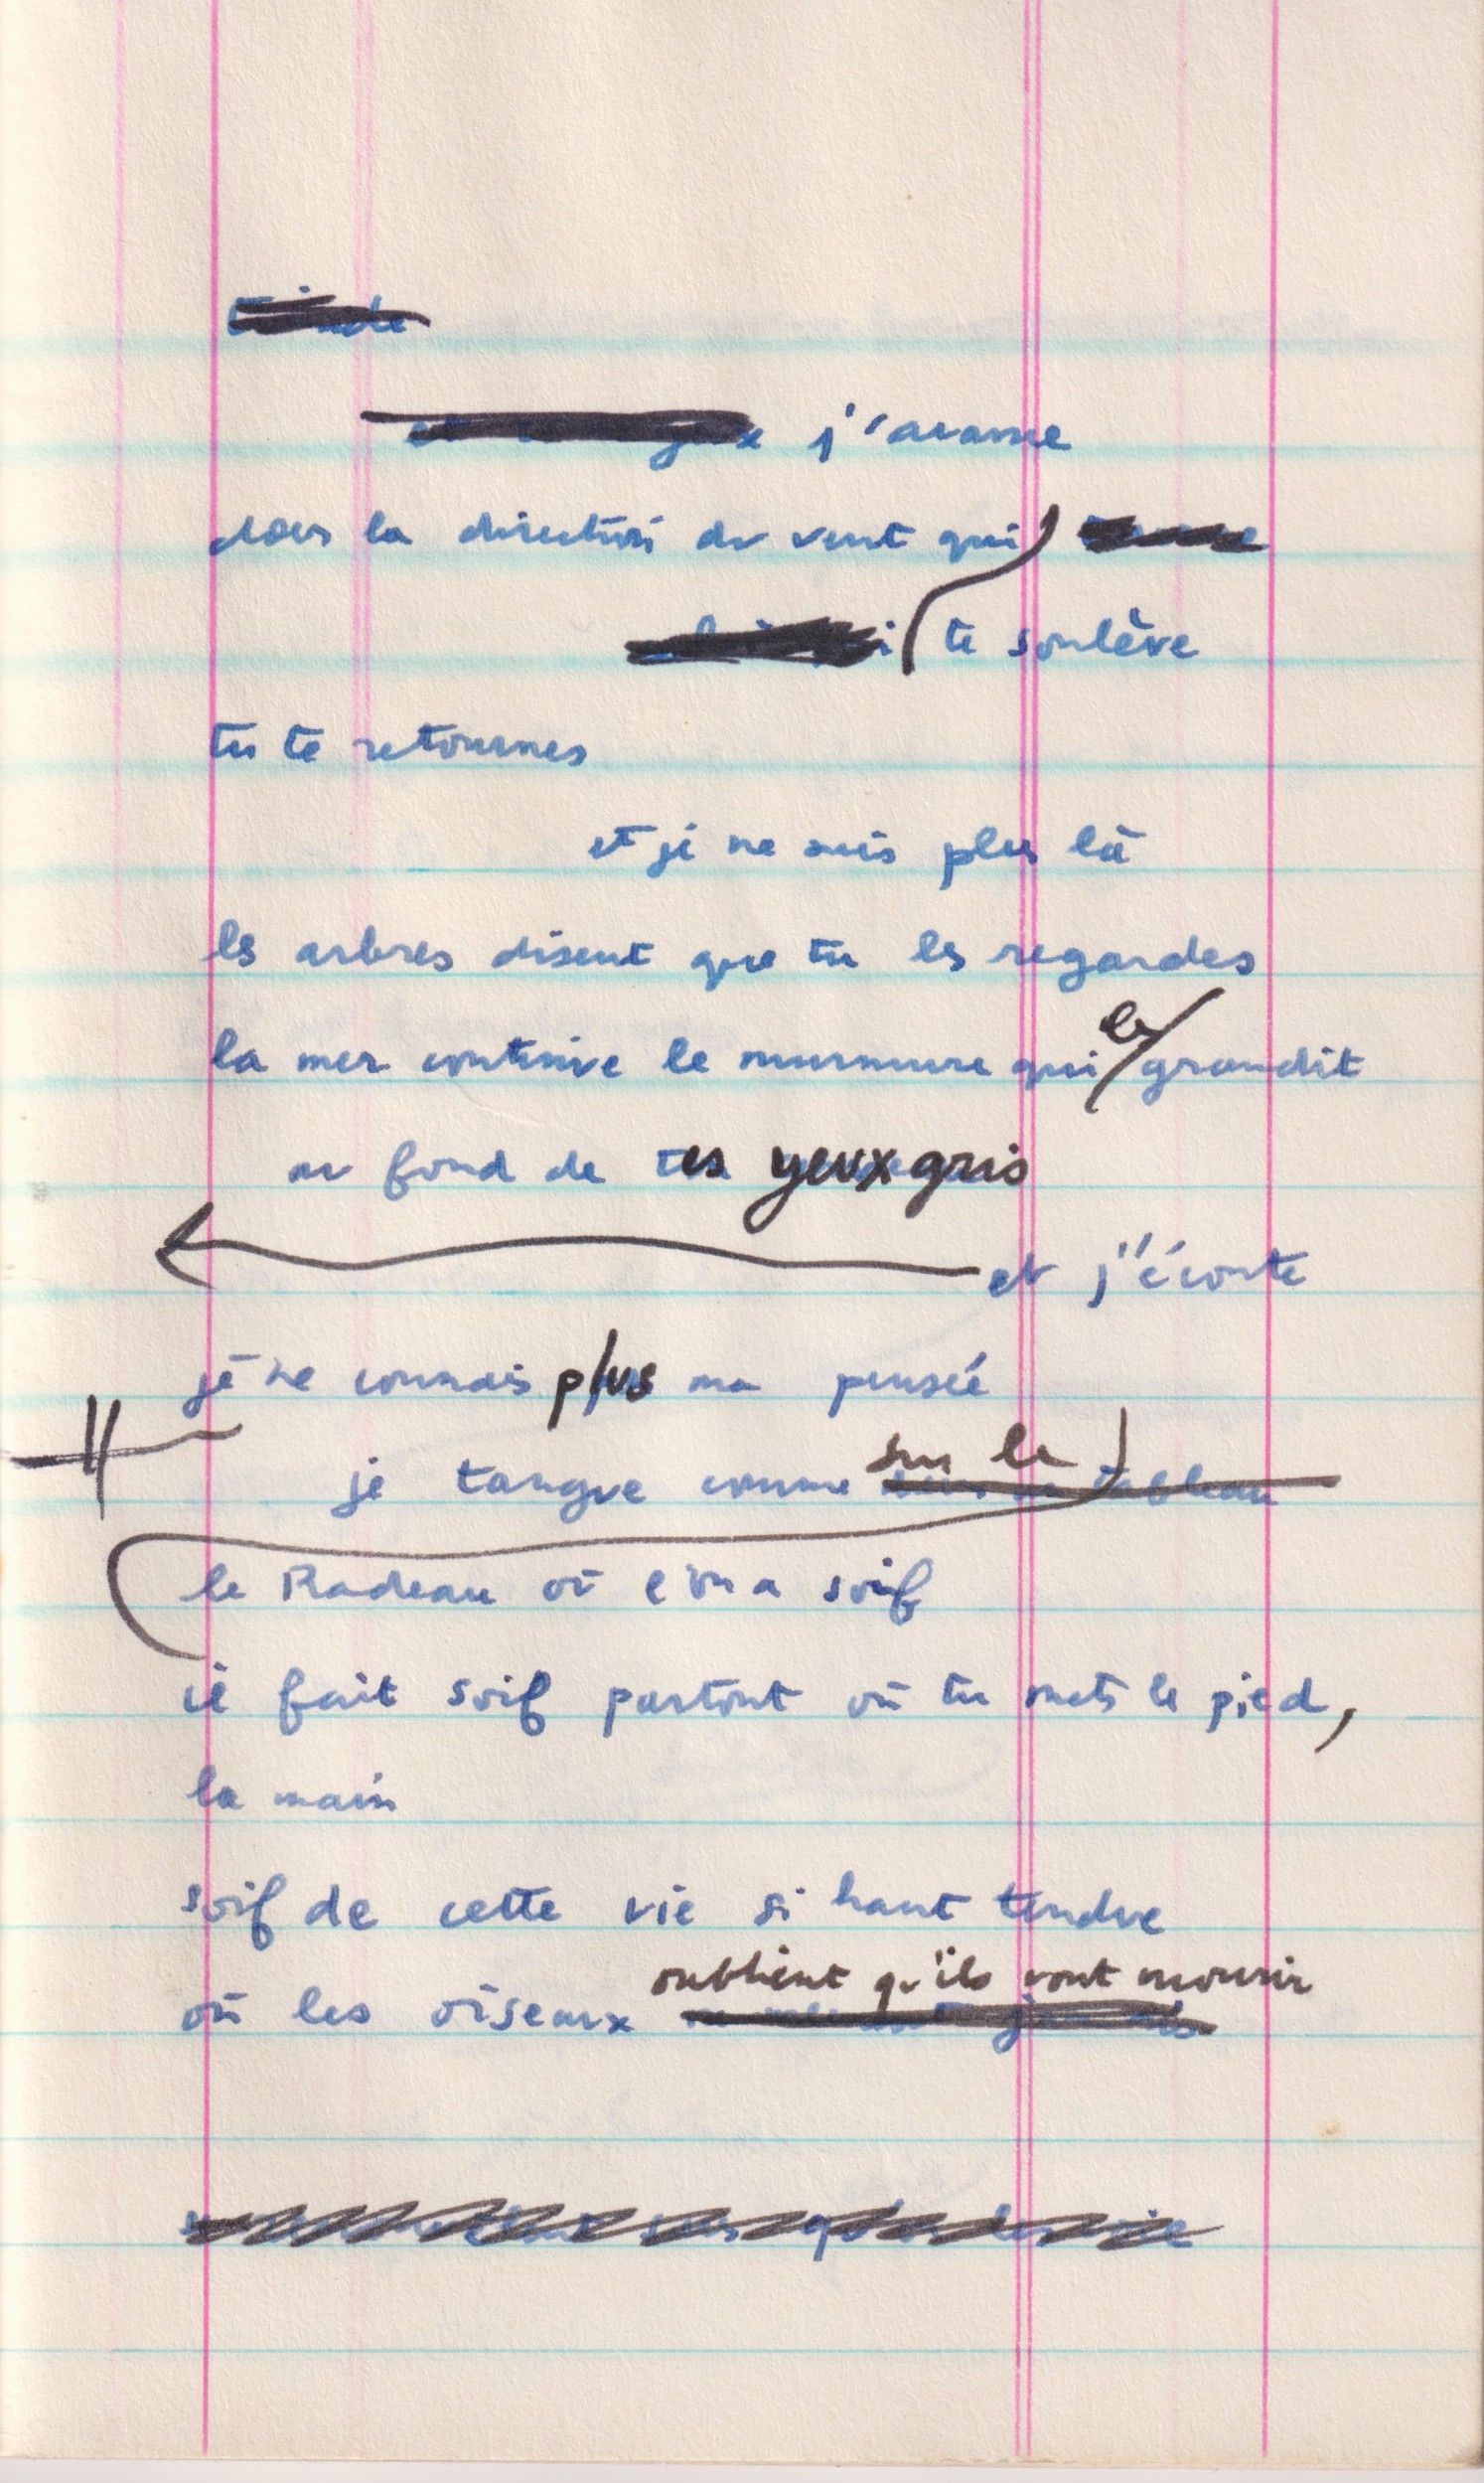 j'avance
dans la direction du vent qui
te soulève
tu te retournes
et je ne suis plus là
les arbres disent que tu les regardes
la mer continue le murmure qui
grandit
au fond de tes yeux gris
et j'écoute
je ne connais plus ma pensée
sur le
je tangue comme tableau
le Radeau où l'on a soif
il fait soif partout où tu mets le pied,
la main
soif de cette vie si haut tendue
oublient qu'ils vont mourir
où les oiseaux